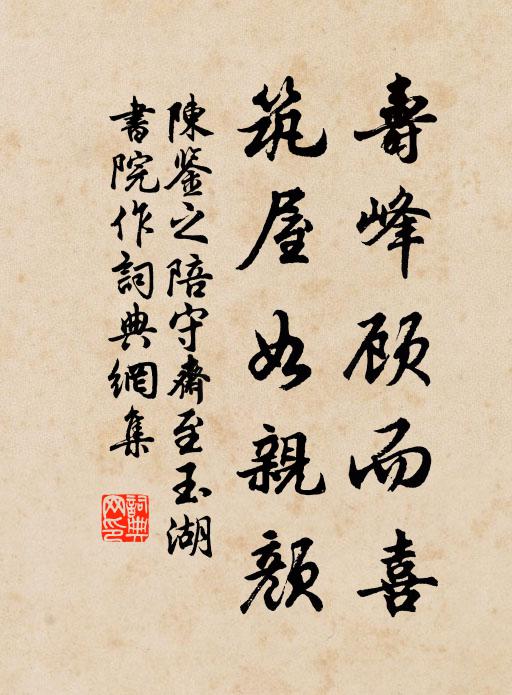 壽峰顧而喜
筑屋如親顏
陳鉴之陪守齋至玉湖
書院作詞典網集
詞典網印